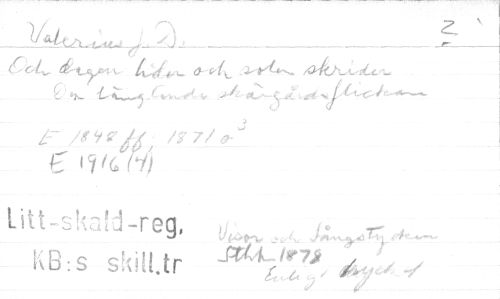 Valerius J. D. 2
Och dagen lider och solen skrider
Den längtande skärgårdsflickan
E 1848 ff; 1871 o³
E 1916 (4)
Litt-skald-reg.
KB:s skill.tr
Visor och Sångstycken
Sthlm 1878
Enligt tryck